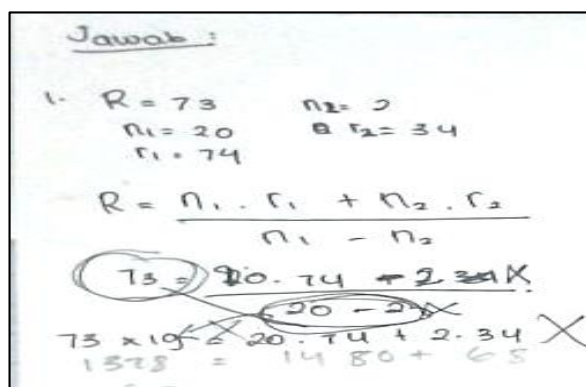 Jawab :
1. R = 73 n2 = 2
n1 = 20 r2 = 34
r1 = 74
R = n1 . r1 + n2 . r2
n1 - n2
73 = 20.74 - 2 34 X
20 - 2 X
73 x 19 = 20.74 + 2.34 X
1378 = 1480 + 68